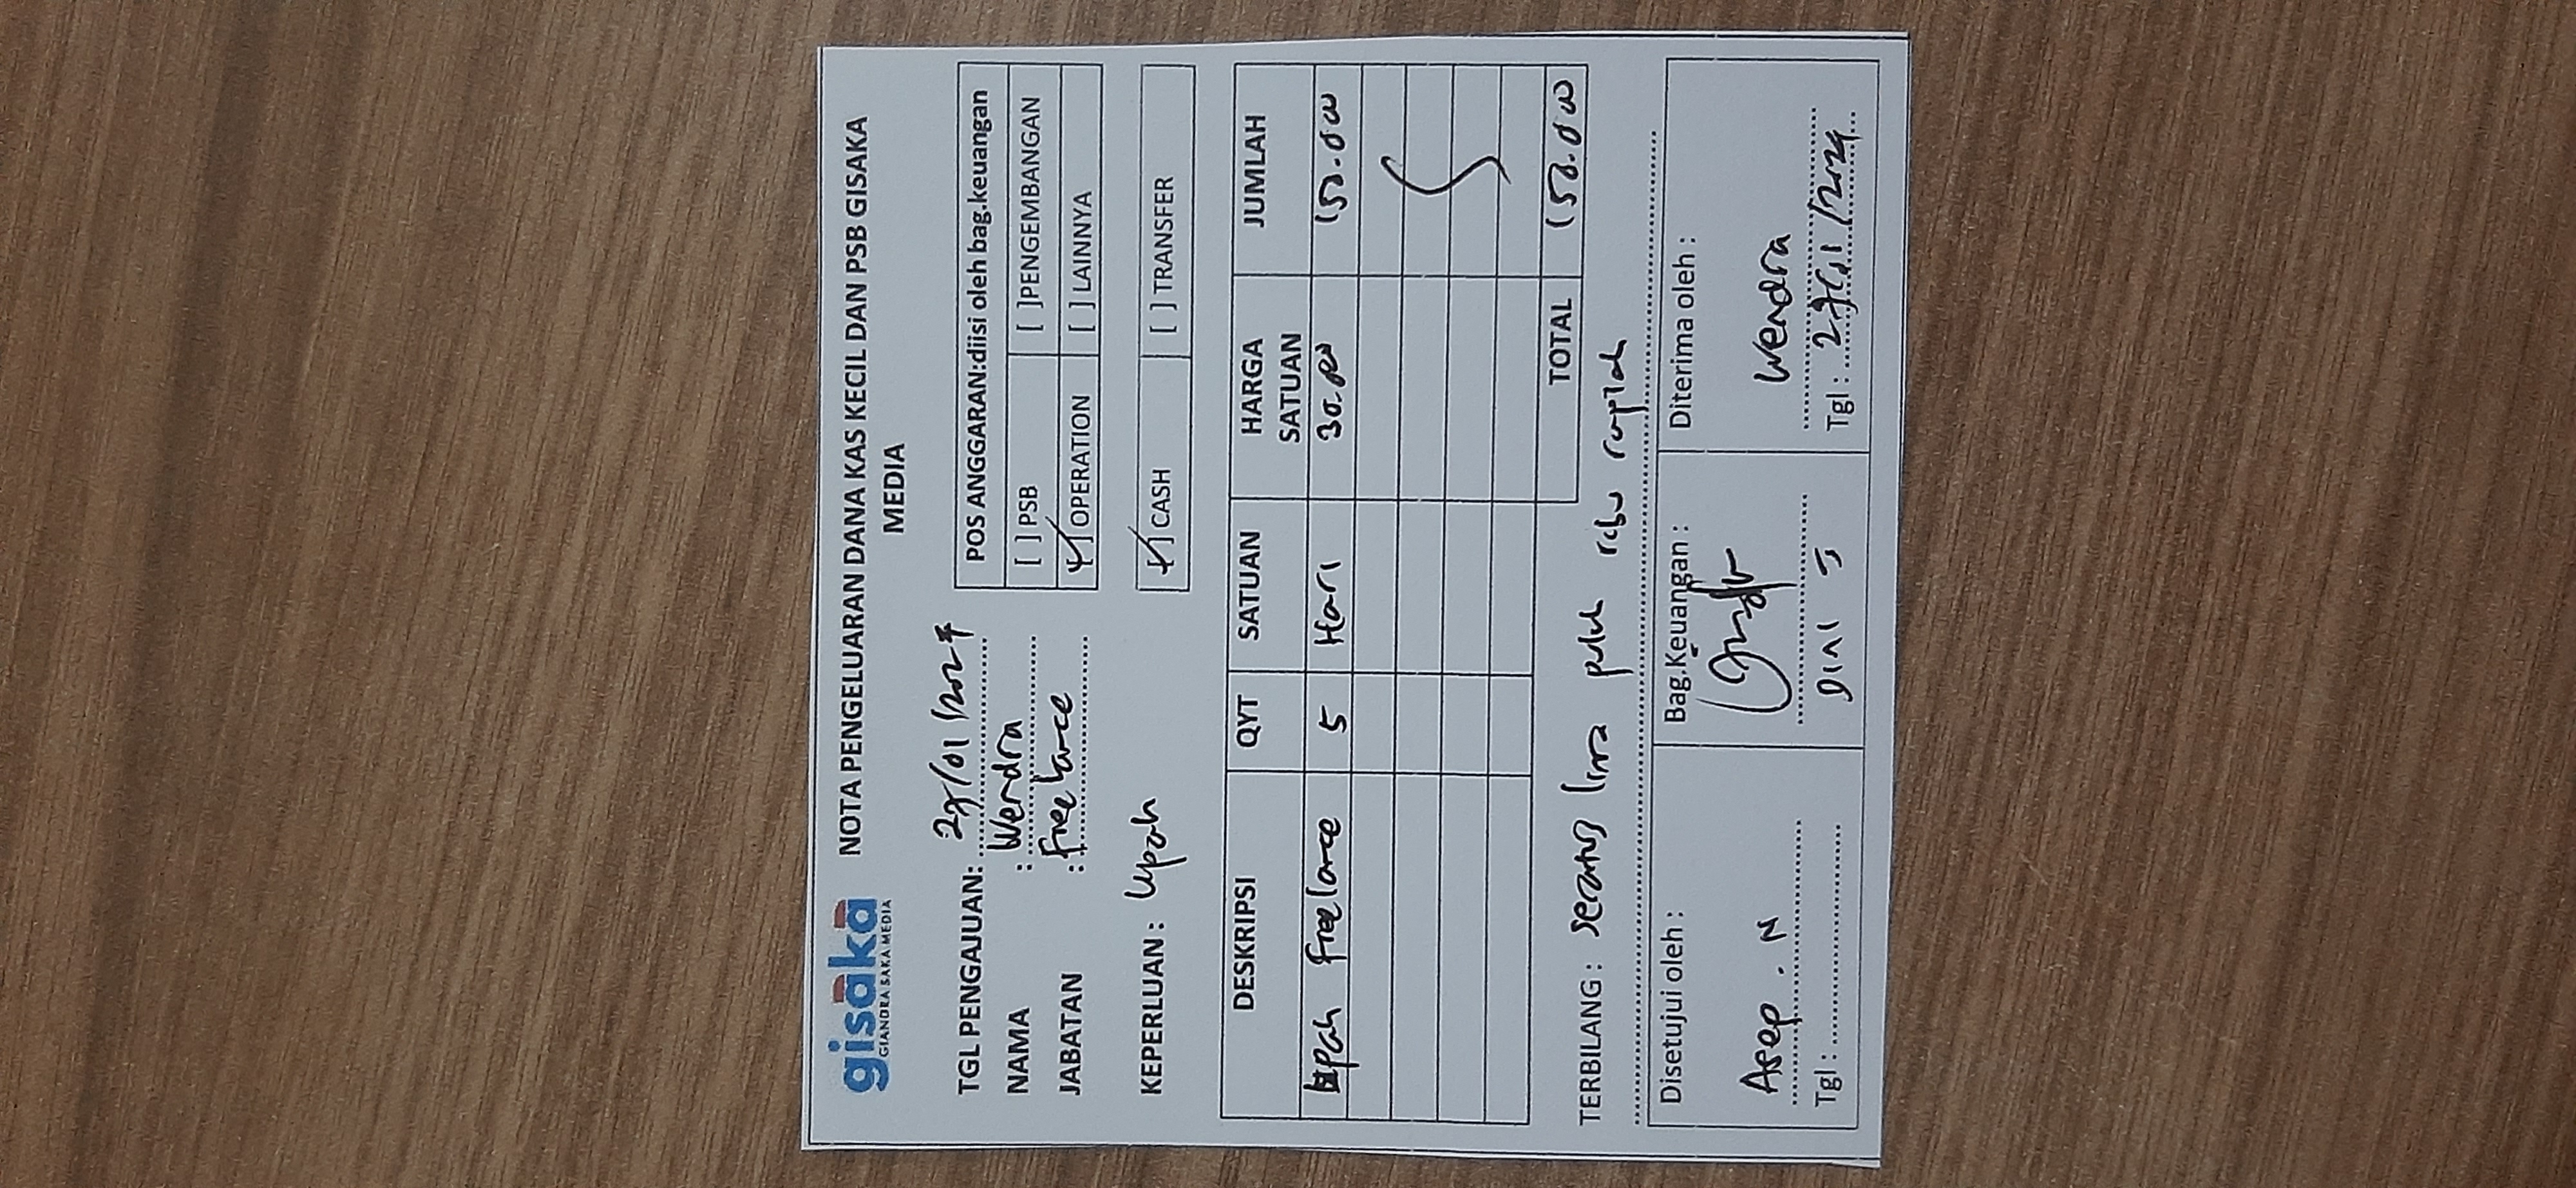 gisaka
GIANDRA SAKA MEDIA
NOTA PENGELUARAN DANA KAS KECIL DAN PSB GISAKA
MEDIA
TGL PENGAJUAN: 27/01/2024
NAMA : Wendra
JABATAN : Freelance
KEPERLUAN : Upah
POS ANGGARAN:diisi oleh bag.keuangan
[ ] PSB [ ]PENGEMBANGAN
[✓] OPERATION [ ] LAINNYA
[✓] CASH [ ] TRANSFER
DESKRIPSI QYT SATUAN HARGA SATUAN JUMLAH
Upah Freelance 5 Hari 30.000 150.000
TOTAL 150.000
TERBILANG : seratus lima puluh ribu rupiah
Disetujui oleh : Bag.Keuangan : Diterima oleh :
Asep . N Wendra
Tgl : DINI J Tgl : 27/01/2024